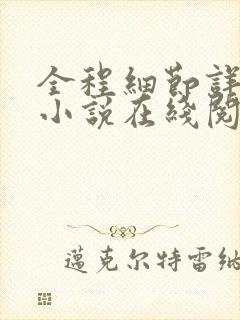 全程細節詳
小說在綫閱
邁克尔特雷納